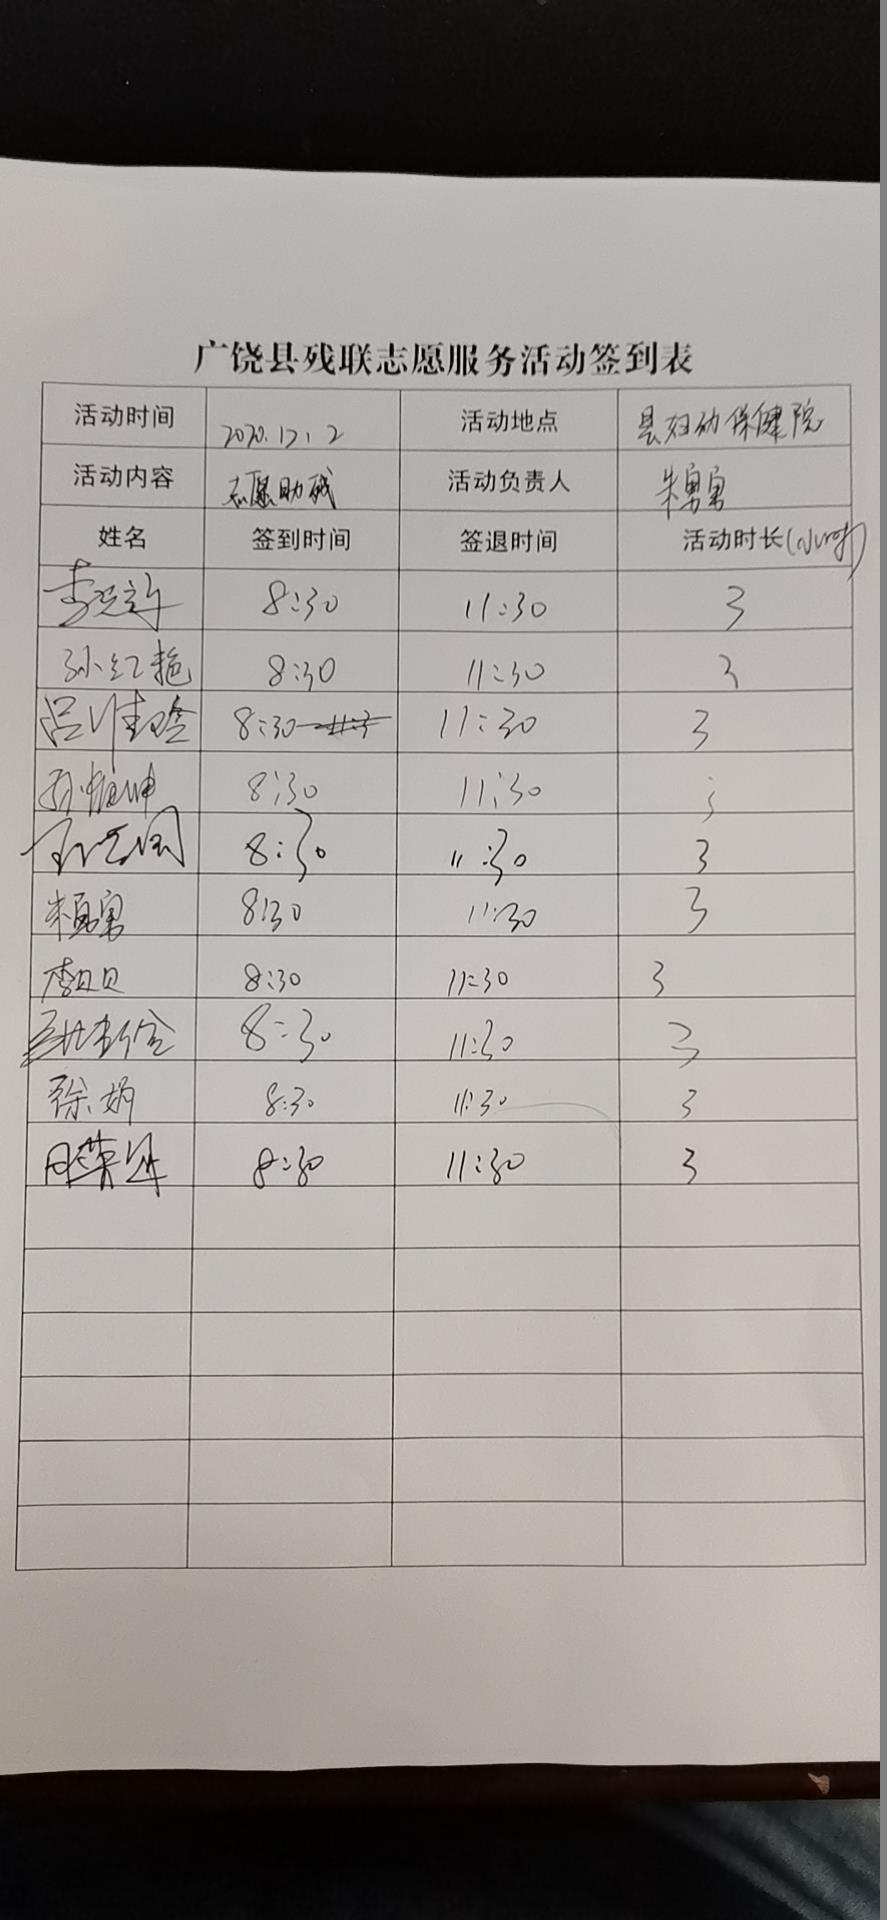 广饶县残联志愿服务活动签到表
活动时间 2020.12.2 活动地点 县妇幼保健院
活动内容 志愿助残 活动负责人
姓名 签到时间 签退时间 活动时长(小时)
8:30 11:30 3
孙红艳 8:30 11:30 3
8:30 11:30 3
8:30 11:30 3
8:30 11:30 3
8:30 11:30 3
李贝贝 8:30 11:30 3
8:30 11:30 3
徐娟 8:30 11:30 3
8:30 11:30 3